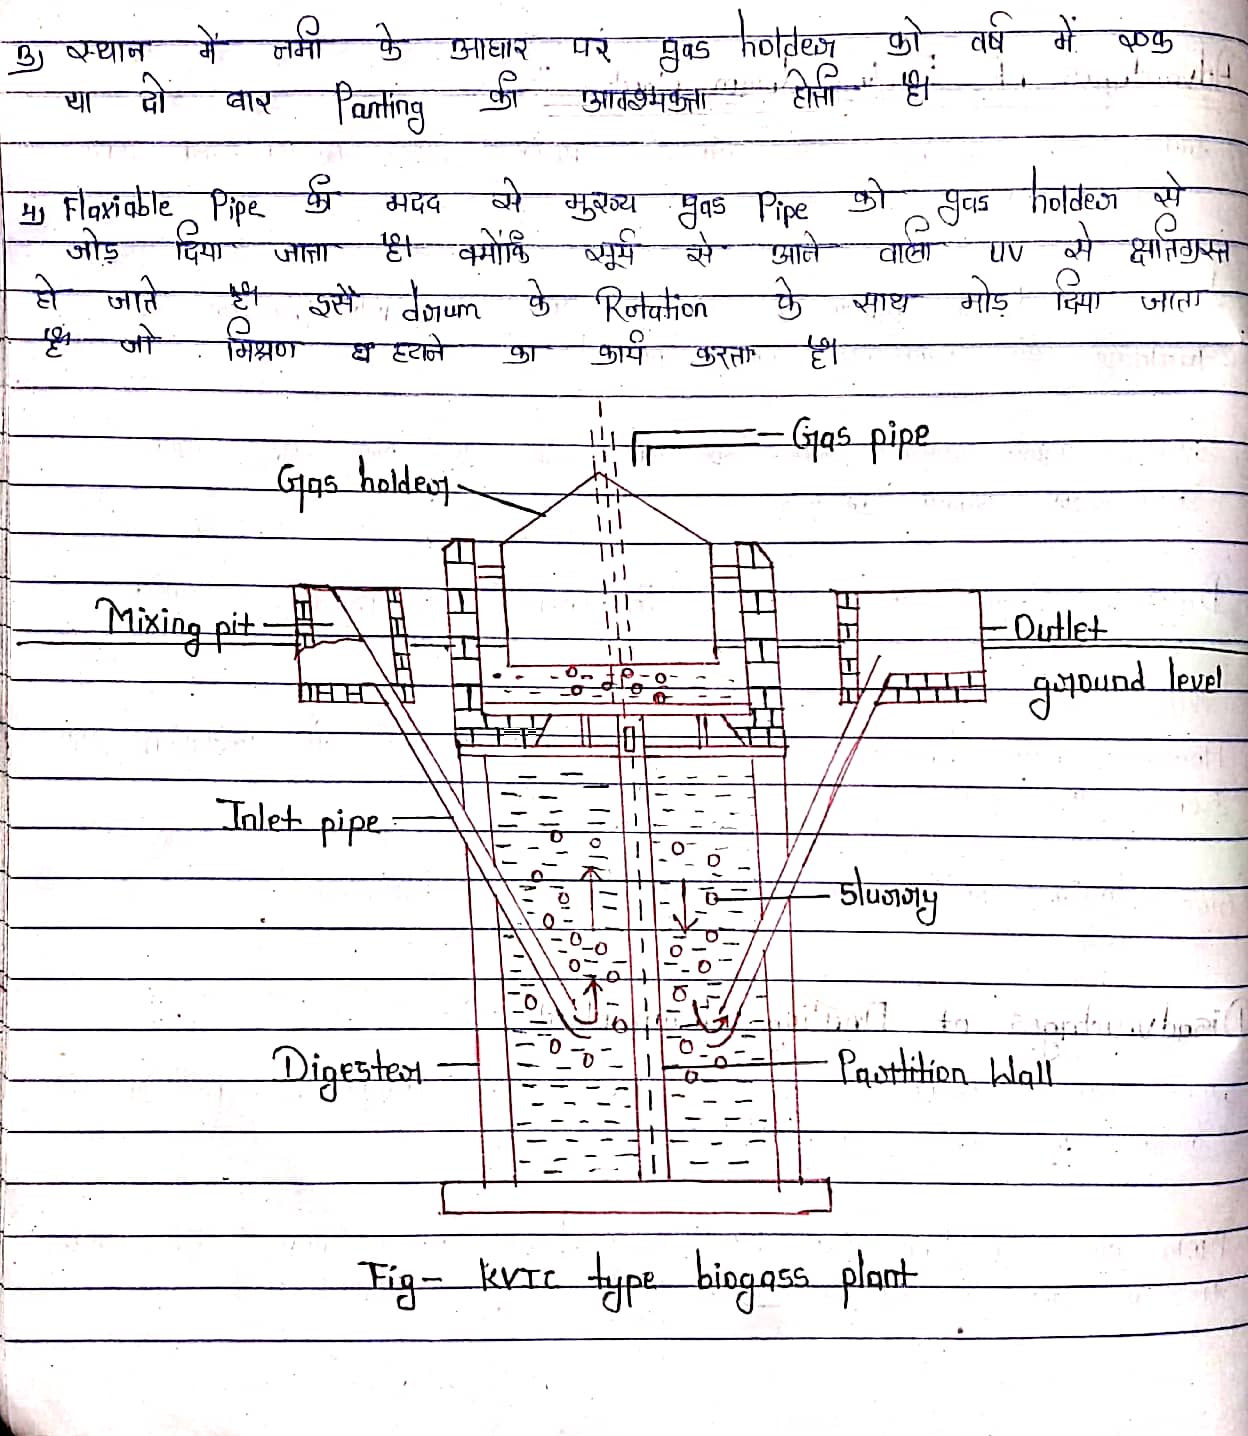 3) स्थान में नमी के आधार पर gas holder को वर्ष में एक
या दो बार Panting की आवश्यकता होती है।
4) Flaxiable Pipe की मदद से मुख्य gas Pipe को gas holder से
जोड़ दिया जाता है। क्योंकि सूर्य से आने वाली UV से क्षतिग्रस्त
हो जाते हैं। इसे drum के Rotation के साथ मोड़ दिया जाता
है जो मिश्रण व हटाने का कार्य करता है।
Gas pipe
Gas holder
Mixing pit
Outlet
ground level
Inlet pipe
Slurry
Digester
Parttition Wall
Fig- KVIC type biogass plant